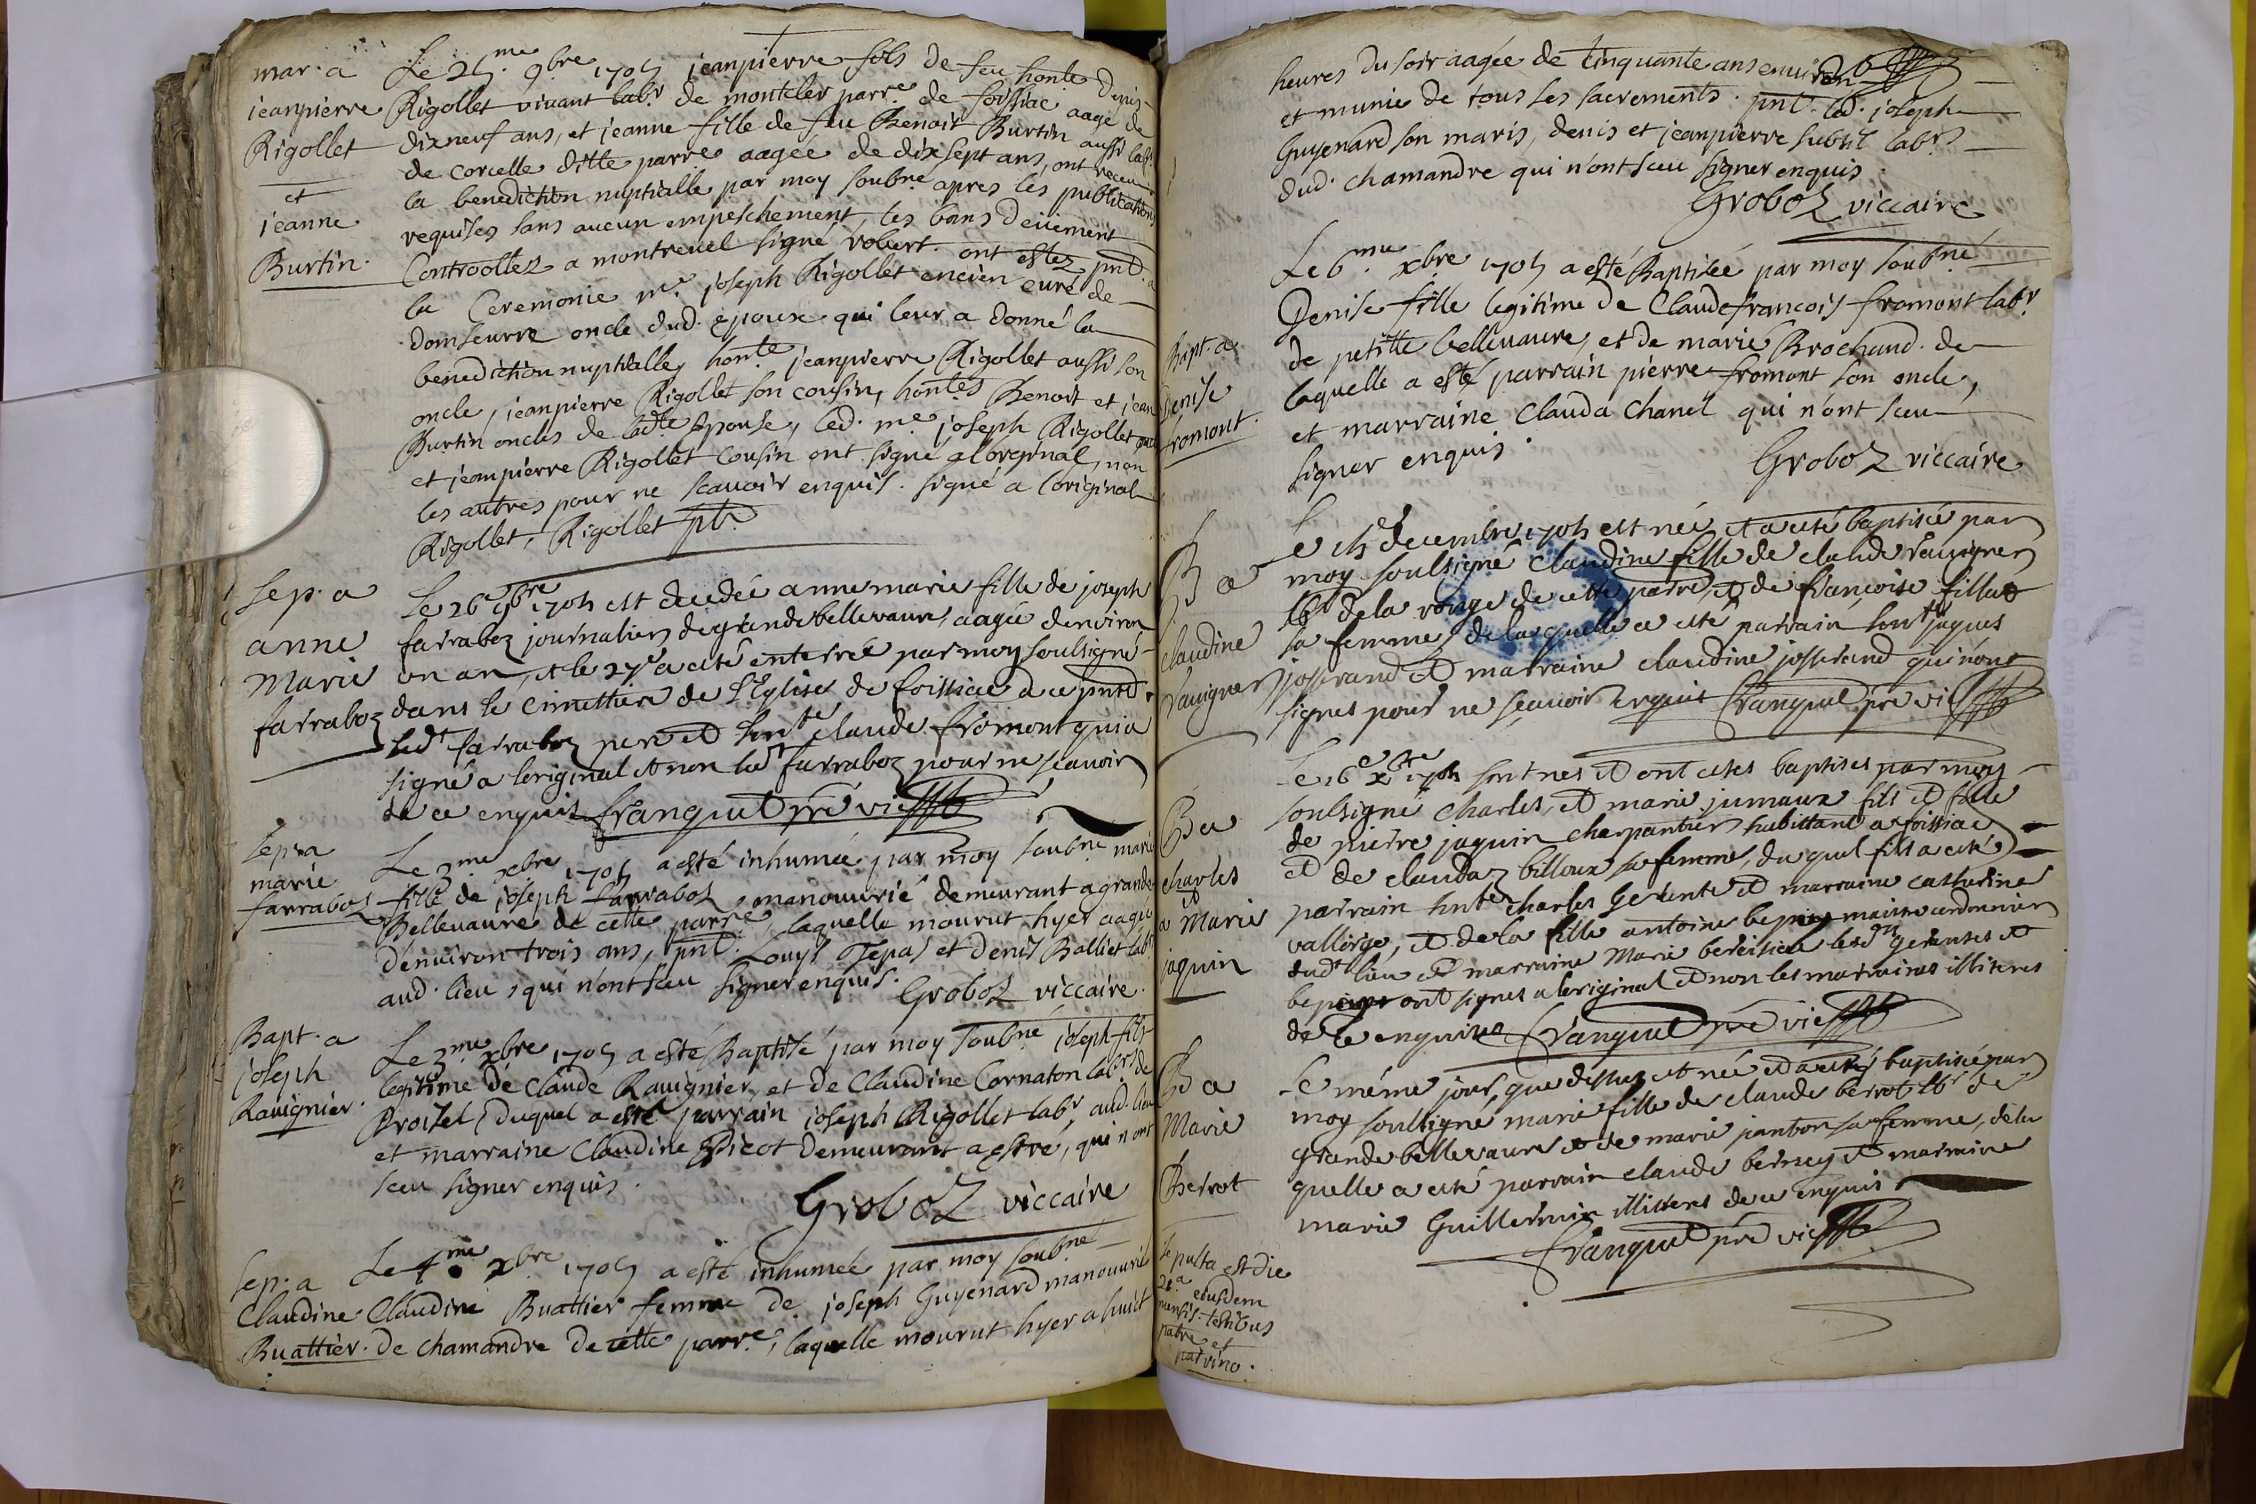 mar. a
jeanpierre
Rigollet
et
jeanne
Burtin.
Le 25.me 9bre 1705 jeanpierre fils de feu honte Denis
Rigollet vivant labr de montcler parre de foissiac aagé de
dixneuf ans, et jeanne fille de feu Benoit Burtin aussi labr
de corcelle ditte parre aagée de dix sept ans, ont receu
la benediction nuptialle par moy soubné apres les publications
requises sans aucun empeschement, les bans deüement
Controollez a montreuel signé robert. ont estez pnt. a
la Ceremonie mre joseph Rigollet encien curé de
domseurre oncle dud. Epoux qui leur a donné la
benediction nuptialle, honte jeanpierre Rigollet aussi son
oncle, jeanpierre Rigollet son cousin, hontes Benoit et jean
Burtin oncles de ladte Epouse, led. mre joseph Rigollet
et jeanpierre Rigollet cousin ont signé a lorginal, non
les autres pour ne scauoir enquis. signé a loriginal
Rigollet, Rigollet ptr
Sep. a
anne
Marie
farraboz
Le 26e 9bre 1705 est decedée anne marie fille de joseph
farraboz journalier de grande bellevaure, aagée denviron
un an, et le 27e a esté enterrée par moy soulsigné
dans le cimettiere de l'Eglise de foissiac a ce pnts
ledt farraboz pere et honte claude fromont qui a
signé a loriginal et non ledt farraboz pour ne scauoir
de ce enquis franquet pre vic
Sep. a
marie
farraboz
Le 3me xbre 1705 a esté inhumée par moy soubné marie
fille de joseph farraboz, manouurié demeurant a grande
Bellevaure de cette parre, laquelle mourut hyer aagée
d'enuiron trois ans, pnt. Louys Tepas et denis Balliet labrs
aud. lieu, qui n'ont sceu signer enquis.
Groboz viccaire.
Bapt. a
joseph
Rauignier.
Le 3me xbre 1705 a esté Baptisé par moy soubné joseph fils
legitime de Claude Rauignier, et de Claudine Cornaton labrs de
Proisel, duquel a esté parrain joseph Rigollet labr aud. lieu
et marraine Claudine Picot demeurant a Estre, qui n'ont
sceu signer enquis.
Groboz viccaire
Sep. a
Claudine
Buattier.
Le 4.me xbre 1705 a esté inhumée par moy soubné
Claudine Buattier femme de joseph Guyenard manouurié
de chamandre de cette parre, laquelle mourut hyer a huict
heures du soir aagée de Cinquante ans enuiron
et munie de tous les sacrements. pnt. led. joseph
Guyenard son maris, denis et jeanpierre subtil labrs
dud. chamandre qui n'ont sceu signer enquis.
Groboz viccaire
Bapt. a
Denise
fromont.
Le 6.me xbre 1705 a esté Baptisée par moy soubné
Denise fille legitime de Claudefrancois fromont labr
de petitte bellevaure, et de marie Brochand. de
laquelle a esté parrain pierre fromont son oncle,
et marraine Clauda Chanel qui n'ont sceu
signer enquis.
Groboz viccaire
B a
claudine
rauigner
Le 15 decembre 1705 est née et a esté baptisée par
moy soulsigné claudine fille de claude rauigner
lbr de la rouge de cette parre, et de francoise fillat
sa femme, de laquelle a esté parrain honte jaques
josserand et marraine claudine josserand qui n'ont
signes pour ne sçauoir enquis franquet pre vic
B a
charles
et
a Marie
jaquin
Le 16e xbre 1705 sont nes et ont estes baptises par moy
soulsigné charles, et marie jumaux fils et fille
de pierre jaquin charpantier habittant a foissiac
et de claudaz billoux sa femme, du quel fils a esté
parrain honte charles Gerente et marraine catherine
vallorge, et de la fille antoine maitre cordonnier
dudt lieu et marraine Marie les dts gerentes et
ont signes a loriginal et non les marraines illiteres
de ce enquises franquet pre vic
B a
Marie
Berrot
Le méme jour que dessus est née et a esté baptisée par
moy soulsigné marie fille de claude berrot lbr de
grande bellevaure et de marie janton sa femme, de la
quelle a esté parrain claude berrey et marraine
marie Guillermin illiteres de ce enquis
franquet pre vic
Sepulta est die
28a eiusdem
mensis testibus
patre et
patrino.